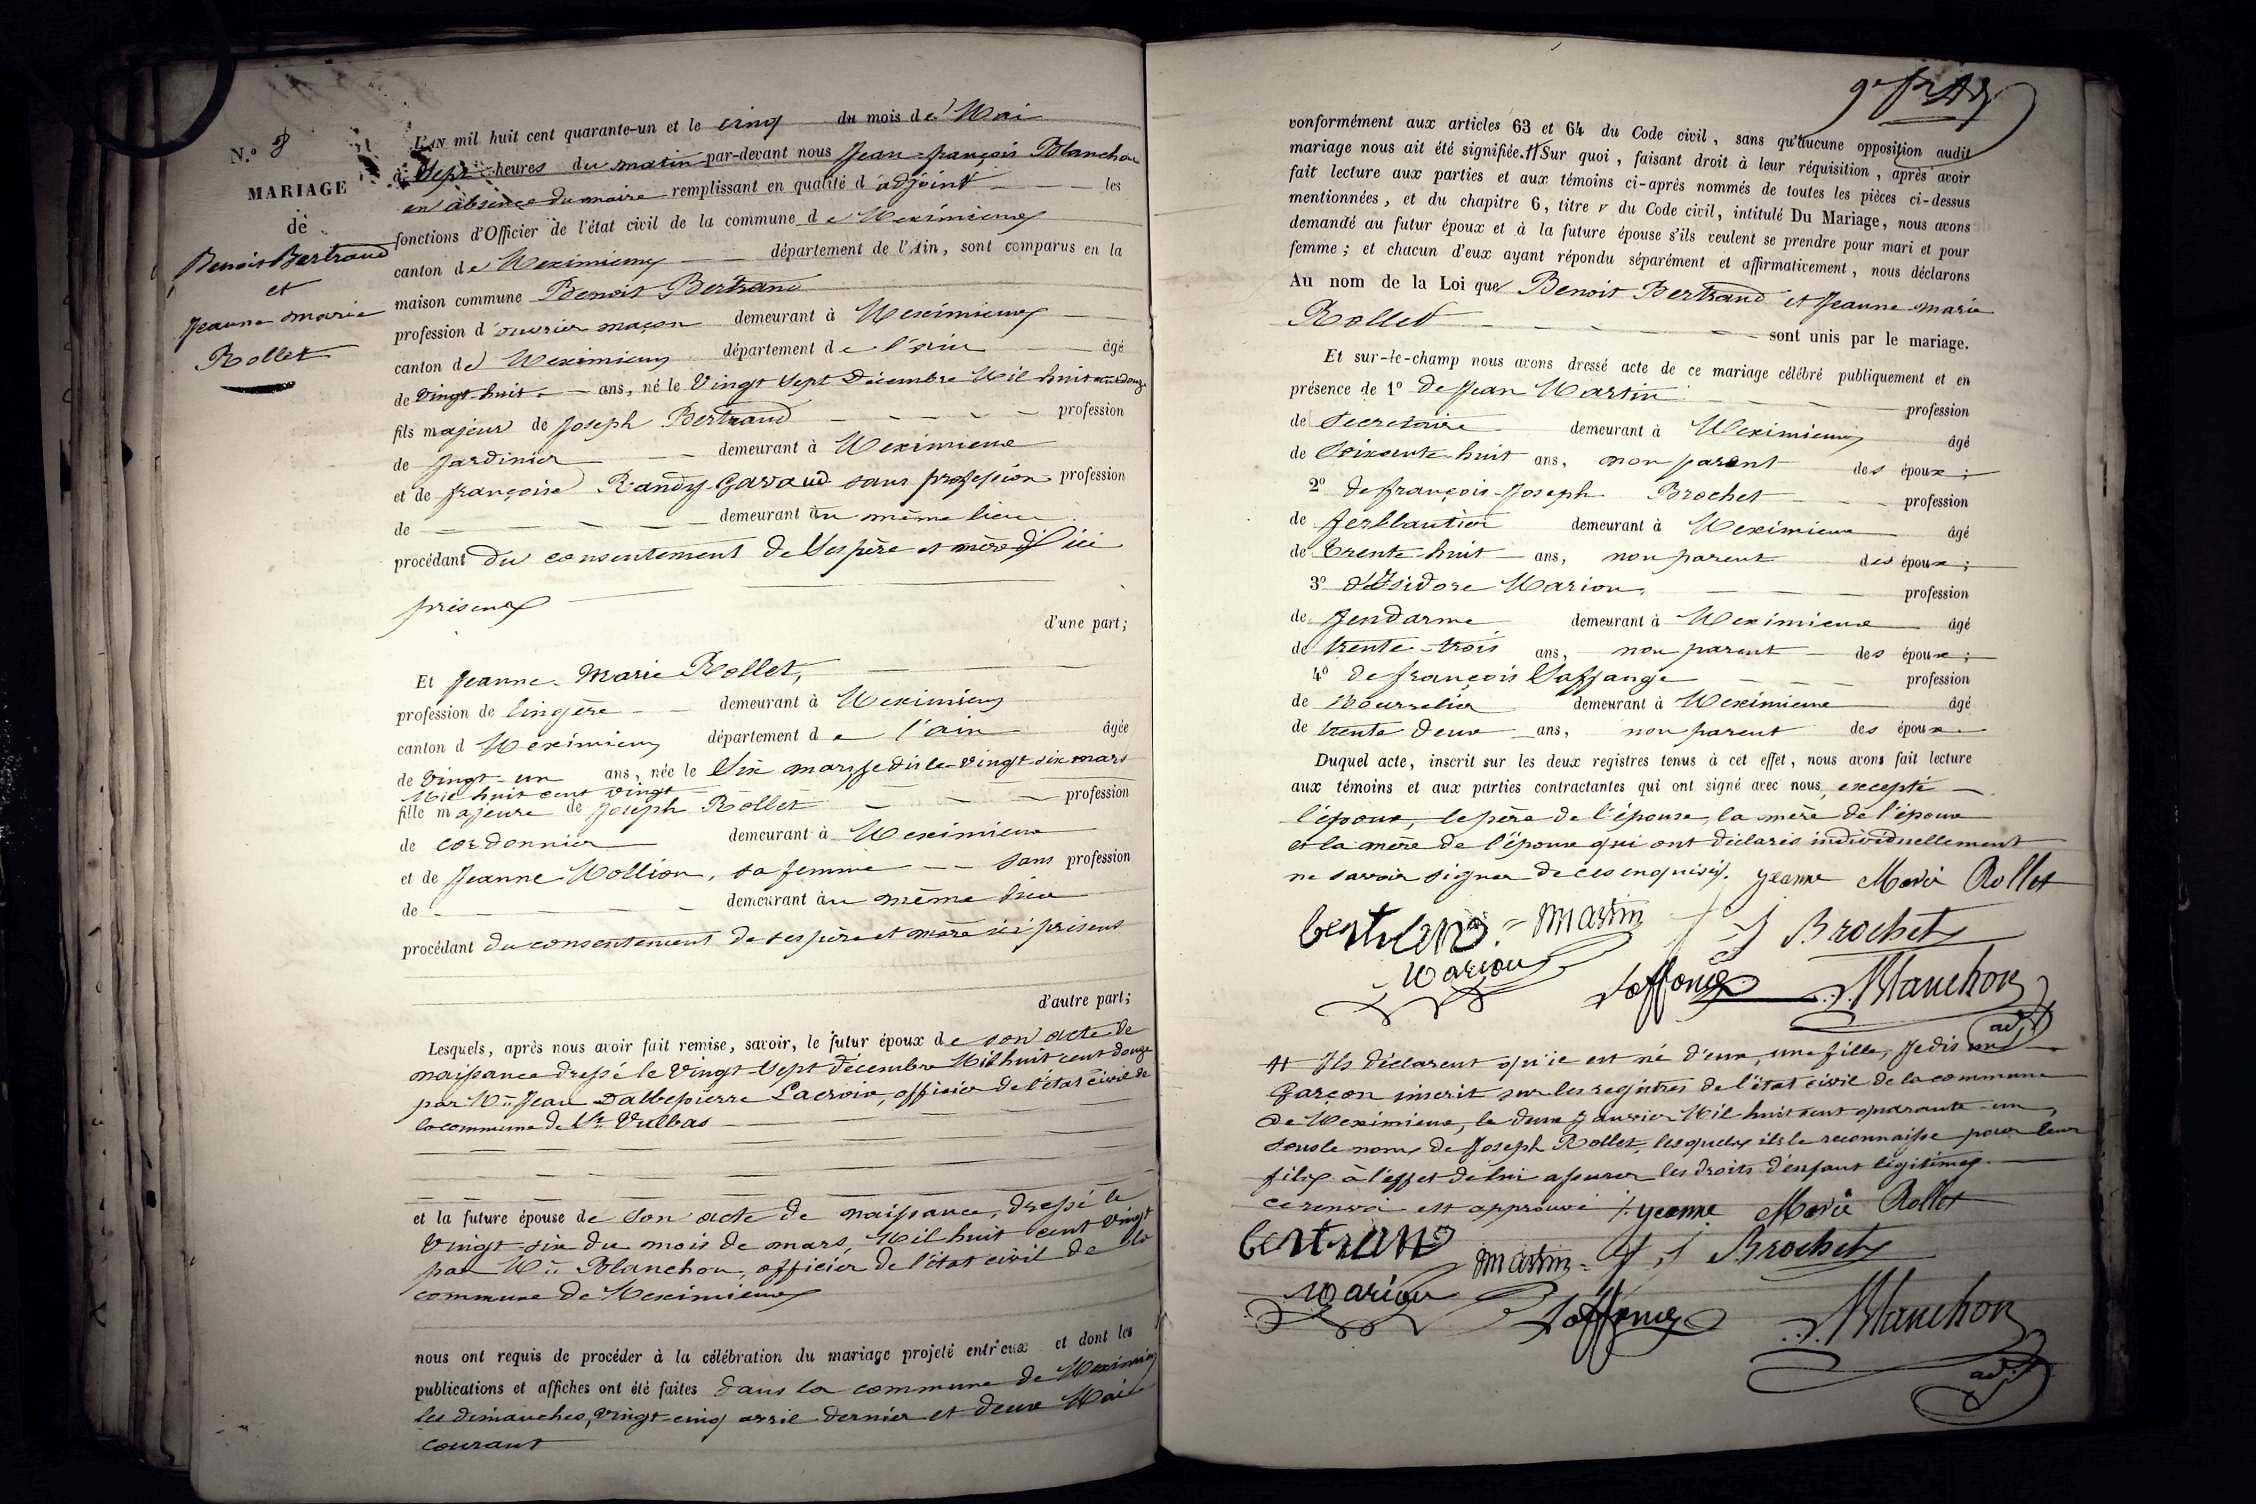 N.º 8
MARIAGE
de
Benoit Bertrand
et
Jeanne marie
Rollet
L'AN mil huit cent quarante-un et le cinq du mois de Mai
à Sept heures du matin par-devant nous Jean-françois Blanchon
en absence du maire remplissant en qualité d'adjoint les
fonctions d'Officier de l'état civil de la commune de Meximieux
canton de Meximieux département de l'Ain, sont comparus en la
maison commune Benoit Bertrand
profession d'ouvrier maçon demeurant à Meximieux
canton de Meximieux département de l'ain âgé
de vingt-huit ans, né le Vingt Sept Décembre Mil huit cent douze
fils majeur de Joseph Bertrand profession
de Jardinier demeurant à Meximieux
et de françoise Randy-Gavaud sans profession profession
de demeurant au même lieu
procédant du consentement de Ses père et mère ici
présents
d'une part;
Et Jeanne-Marie Rollet,
profession de lingère demeurant à Meximieux
canton d Meximieux département de l'ain âgée
de vingt-un ans, née le Six mars, je dis le vingt-six mars
Mil huit cent vingt
fille majeure de Joseph Rollet profession
de cordonnier demeurant à Meximieux
et de Jeanne Mollion, sa femme sans profession
de demeurant au même lieu
procédant du consentement de ses père et mère ici présens
d'autre part;
Lesquels, après nous avoir fait remise, savoir, le futur époux de son acte de
naissance dressé le Vingt-Sept décembre Mil huit cent douze
par Mr Jean Dalbepierre Lacroix, officier de l'état civil de
la commune de St Vulbas
et la future épouse de son acte de naissance, dressé le
Vingt-six du mois de mars, Mil huit cent vingt
par Mr Blanchon, officier de l'état civil de la
commune de Meximieux
nous ont requis de procéder à la célébration du mariage projeté entr'eux et dont les
publications et affiches ont été faites dans la commune de Meximieux
les dimanches, vingt-cinq avril dernier et deux Mai
courant
conformément aux articles 63 et 64 du Code civil, sans qu'aucune opposition audit
mariage nous ait été signifiée. Sur quoi, faisant droit à leur réquisition, après avoir
fait lecture aux parties et aux témoins ci-après nommés de toutes les pièces ci-dessus
mentionnées, et du chapitre 6, titre v du Code civil, intitulé Du Mariage, nous avons
demandé au futur époux et à la future épouse s'ils veulent se prendre pour mari et pour
femme; et chacun d'eux ayant répondu séparément et affirmativement, nous déclarons
Au nom de la Loi que Benoit Bertrand et Jeanne-marie
Rollet sont unis par le mariage.
Et sur-le-champ nous avons dressé acte de ce mariage célébré publiquement et en
présence de 1º de Jean Martin profession
de Secretaire demeurant à Meximieux âgé
de Soixante-huit ans, non parent des époux;
2º de françois-Joseph Brochet profession
de ferblantier demeurant à Meximieux âgé
de trente-huit ans, non parent des époux;
3º d'Isidore Marion, profession
de Jendarme demeurant à Meximieux âgé
de trente-trois ans, non parent des époux;
4º de françois Saffange profession
de Bourrelier demeurant à Meximieux âgé
de trente deux ans, non parent des époux
Duquel acte, inscrit sur les deux registres tenus à cet effet, nous avons fait lecture
aux témoins et aux parties contractantes qui ont signé avec nous, excepté
l'époux, le père de l'épouse, la mère de l'époux
et la mère de l'épouse qui ont déclarés individuellement
ne savoir signer de ces enquis. jeanne Marie Rollet
bertrand Martin f J Brochet
Marion Saffange Blanchon
adj
Ils déclarent qu'ie est né d'eux, une fille, je dis un
Garçon inscrit sur les registres de l'état civil de la commune
de Meximieux, le deux Janvier Mil huit cent quarante-un,
sous le nom de Joseph Rollet, lesquels ils le reconnaisse pour leur
fils à l'effet de lui assurer les droits d'enfant légitime
ce renvoi est approuvé jeanne Marie Rollet
bertrand Martin f J Brochet
Marion Saffange Blanchon
adj